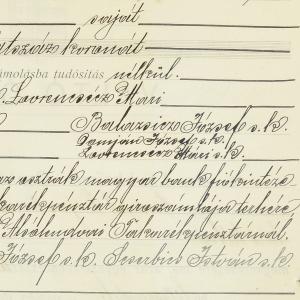 saját
száz koronát
ámolásba tudósítás nélkül.
Lovrencsecz Mari
Balazsicz József s.k.
József s.k.
Lovrencsecz Mari s.k.
az osztrák magyar bank fiókintéze
takarékpénztár girószámlája terhére,
Alsólendvai Takarékpénztárnál.
József s.k. István s.k.